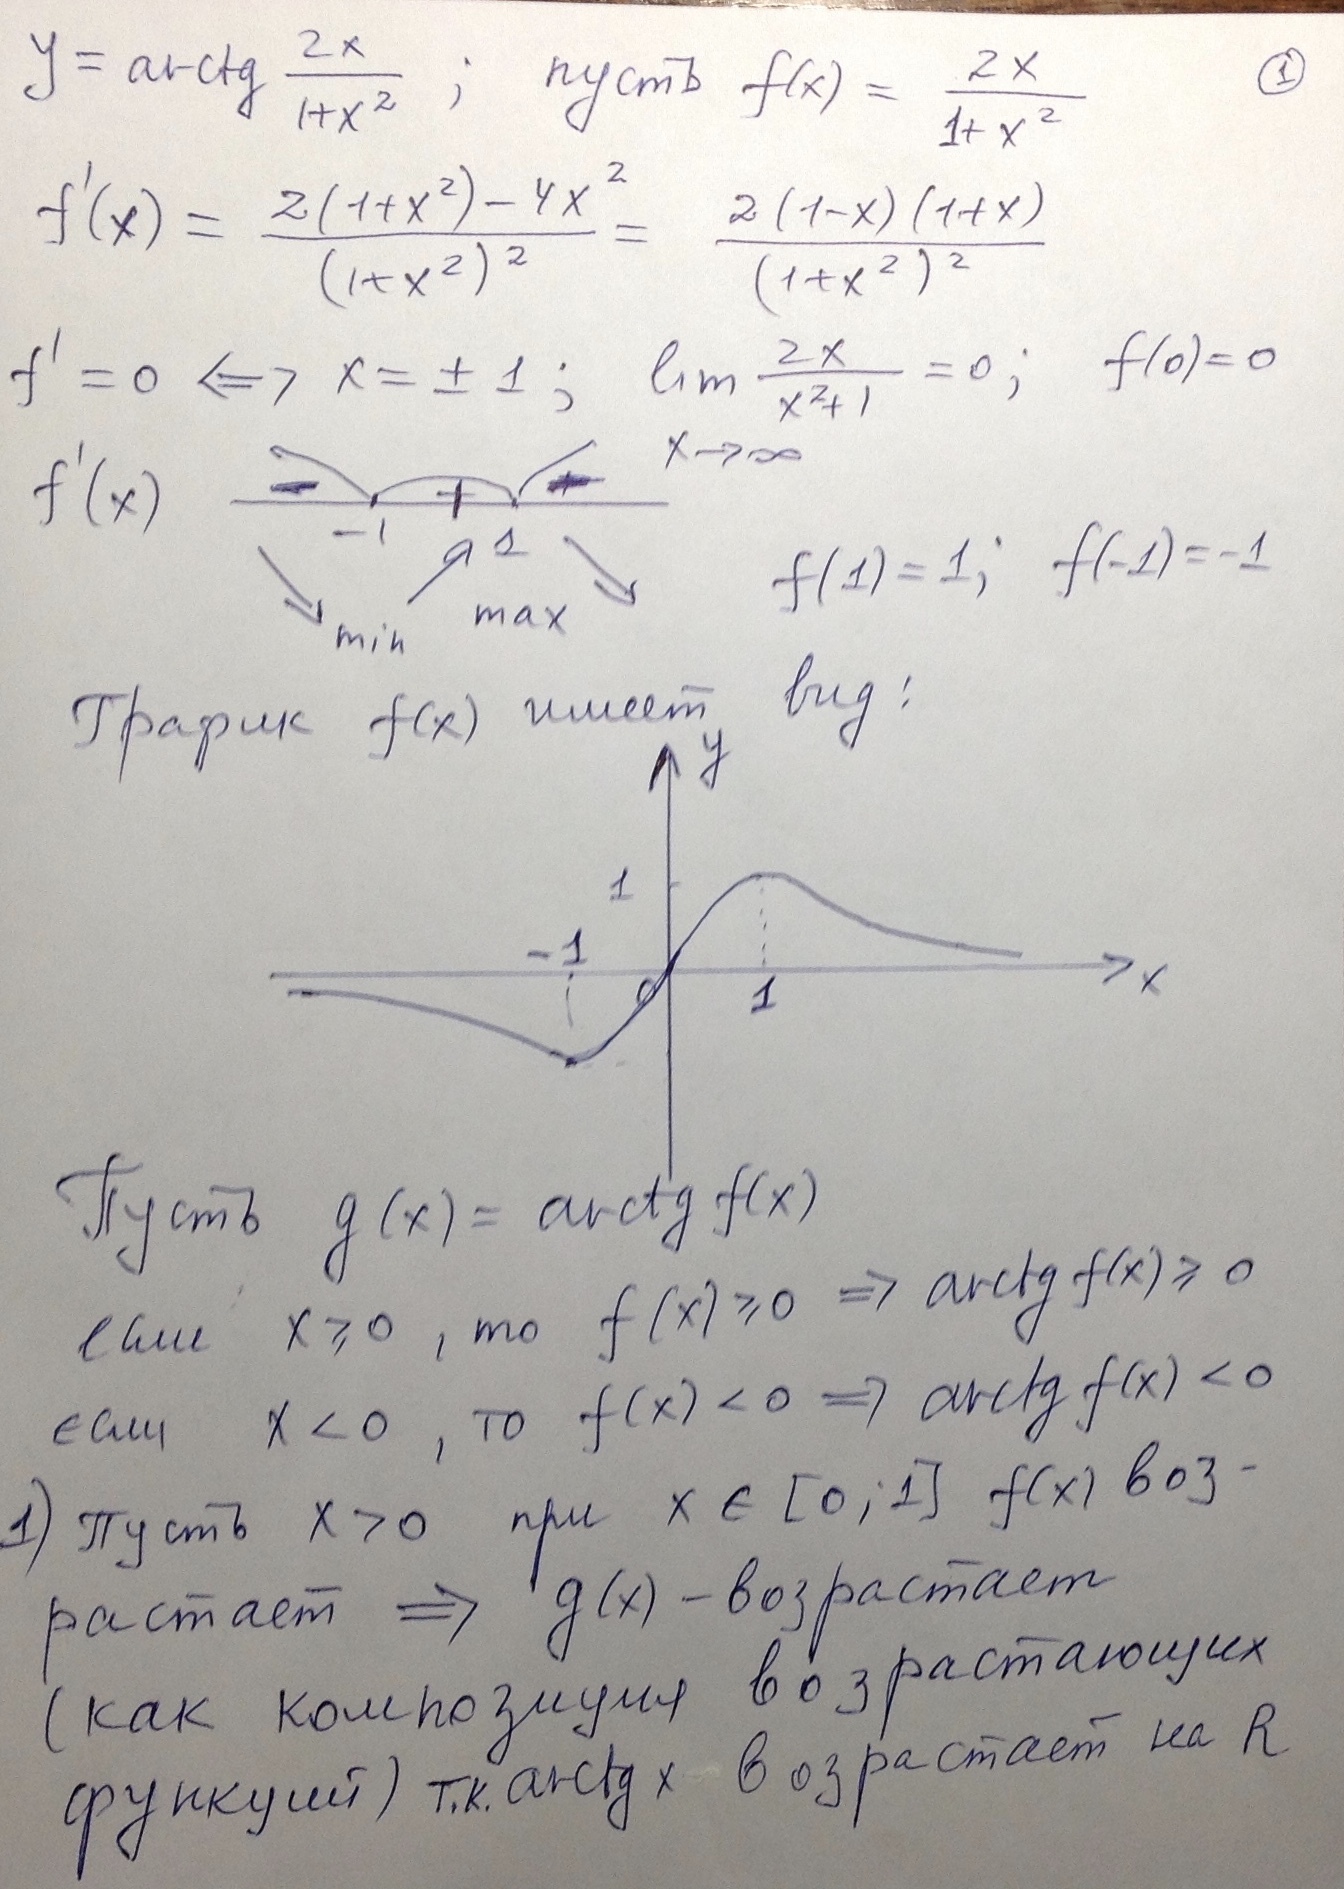 y = arctg 2x/(1+x²) ; пусть f(x) = 2x/(1+x²) ①
f'(x) = (2(1+x²)-4x²)/(1+x²)² = 2(1-x)(1+x)/(1+x²)²
f' = 0 <=> x = ±1; lim 2x/(x²+1) = 0; f(0)=0
x→∞
f'(x) - + -
-1 1
min max
f(1)=1; f(-1)=-1
График f(x) имеет вид:
y
1
-1 0 1 x
Пусть g(x) = arctg f(x)
если x ≥ 0, то f(x) ≥ 0 => arctg f(x) ≥ 0
если x < 0, то f(x) < 0 => arctg f(x) < 0
1) Пусть x > 0 при x ∈ [0;1] f(x) воз-
растает => g(x) – возрастает
(как композиция возрастающих
функций) т.к. arctg x возрастает на R